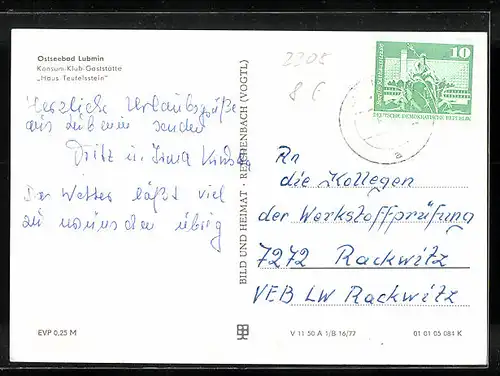 Ostseebad Lubmin
Konsum-Klub-Gaststätte
„Haus Teufelsstein"
2205
8 6
10
DEUTSCHE DEMOKRATISCHE REPUBLIK
Herzliche Urlaubsgrüße
aus Lubmin senden
Fritz u. Irma
Das Wetter läßt viel
zu wünschen übrig
BILD UND HEIMAT · REICHENBACH (VOGTL)
An
die Kollegen
der Werkstoffprüfung
7272 Rackwitz
VEB LW Rackwitz
EVP 0,25 M
V 11 50 A 1/B 16/77
01 01 05 084 K